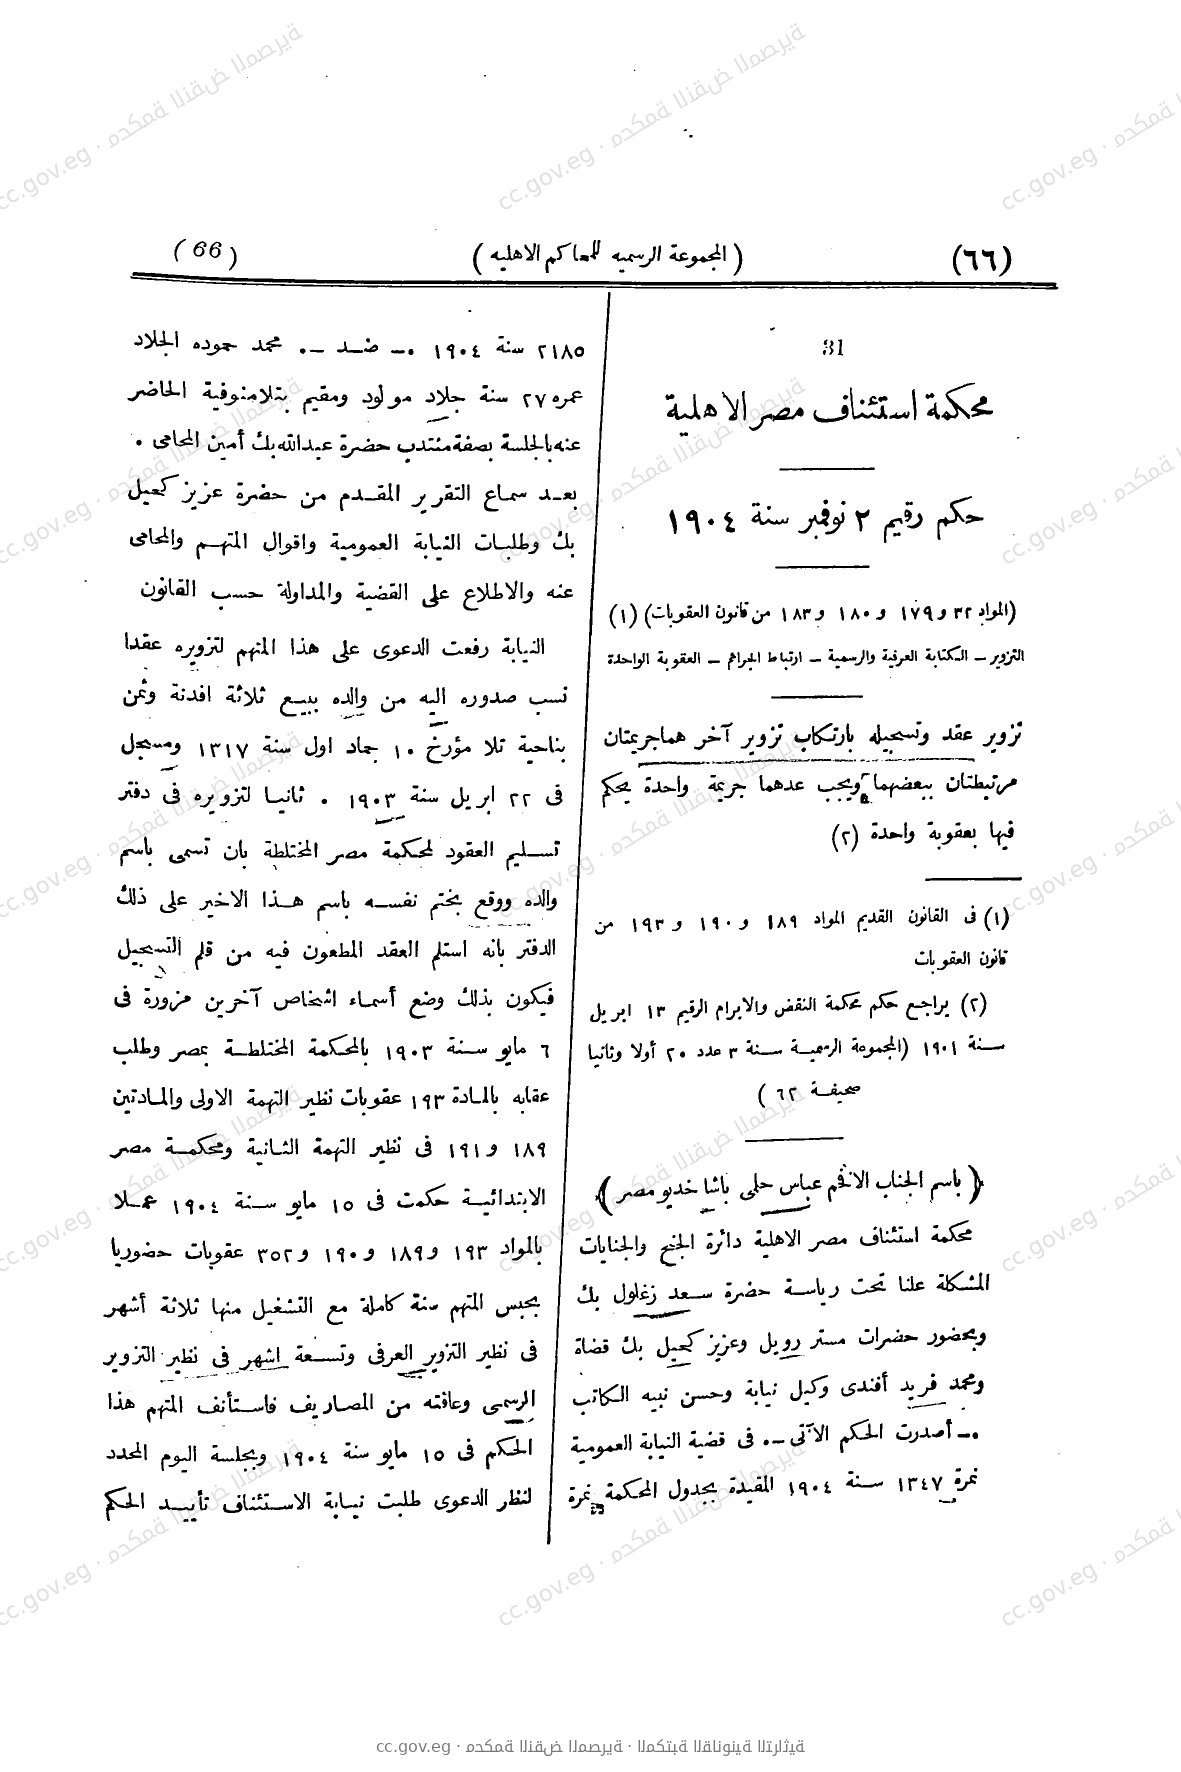 (٦٦)
( المجموعة الرسميه للمحاكم الاهليه )
( 66 )
31
محكمة استئناف مصر الاهلية
حكم رقيم ٢ نوفمبر سنة ١٩٠٤
(المواد ٣٢ و ١٧٩ و ١٨٠ و ١٨٣ من قانون العقوبات) (١)
التزوير – الكتابة العرفية والرسمية – ارتباط الجرائم – العقوبة الواحدة
تزوير عقد وتسجيله بارتكاب تزوير آخر هما جريمتان
مرتبطتان ببعضهما ويجب عدهما جريمة واحدة يحكم
فيها بعقوبة واحدة (٢)
(١) فى القانون القديم المواد ١٨٩ و ١٩٠ و ١٩٣ من
قانون العقوبات
(٢) يراجع حكم محكمة النقض والابرام الرقيم ١٣ ابريل
سنة ١٩٠١ (المجموعة الرسمية سنة ٣ عدد ٢٠ أولا وثانيا
صحيفة ٦٢ )
( باسم الجناب الافخم عباس حلمى باشا خديو مصر )
محكمة استئناف مصر الاهلية دائرة الجنح والجنايات
المشكلة علنا تحت رياسة حضرة سعد زغلول بك
وبحضور حضرات مستر رويل وعزيز كحيل بك قضاة
ومحمد فريد أفندى وكيل نيابة وحسن نبيه الكاتب
•– أصدرت الحكم الآتى –• فى قضية النيابة العمومية
نمرة ١٣٤٧ سنة ١٩٠٤ المقيدة بجدول المحكمة نمرة
٢١٨٥ سنة ١٩٠٤ •– ضد –• محمد حموده الجلاد
عمره ٢٧ سنة جلاد مولود ومقيم بتلا منوفية الحاضر
عنه بالجلسة بصفة منتدب حضرة عبدالله بك أمين المحامى •
بعد سماع التقرير المقدم من حضرة عزيز كحيل
بك وطلبات النيابة العمومية واقوال المتهم والمحامى
عنه والاطلاع على القضية والمداولة حسب القانون
النيابة رفعت الدعوى على هذا المتهم لتزويره عقدا
نسب صدوره اليه من والده ببيع ثلاثة افدنة وثمن
بناحية تلا مؤرخ ١٠ جماد اول سنة ١٣١٧ ومسجل
فى ٢٢ ابريل سنة ١٩٠٣ • ثانيا لتزويره فى دفتر
تسليم العقود لمحكمة مصر المختلطة بان تسمى باسم
والده ووقع بختم نفسه باسم هذا الاخير على ذلك
الدفتر بانه استلم العقد المطعون فيه من قلم التسجيل
فيكون بذلك وضع أسماء اشخاص آخرين مزورة فى
٦ مايو سنة ١٩٠٣ بالمحكمة المختلطة بمصر وطلب
عقابه بالمادة ١٩٣ عقوبات نظير التهمة الاولى والمادتين
١٨٩ و ١٩١ فى نظير التهمة الثانية ومحكمة مصر
الابتدائية حكمت فى ١٥ مايو سنة ١٩٠٤ عملا
بالمواد ١٩٣ و ١٨٩ و ١٩٠ و ٣٥٢ عقوبات حضوريا
بحبس المتهم سنة كاملة مع التشغيل منها ثلاثة أشهر
فى نظير التزوير العرفى وتسعة اشهر فى نظير التزوير
الرسمى وعافته من المصاريف فاستأنف المتهم هذا
الحكم فى ١٥ مايو سنة ١٩٠٤ وبجلسة اليوم المحدد
لنظر الدعوى طلبت نيابة الاستئناف تأييد الحكم
cc.gov.eg · محكمة النقض المصرية · المكتبة القانونية التراثية